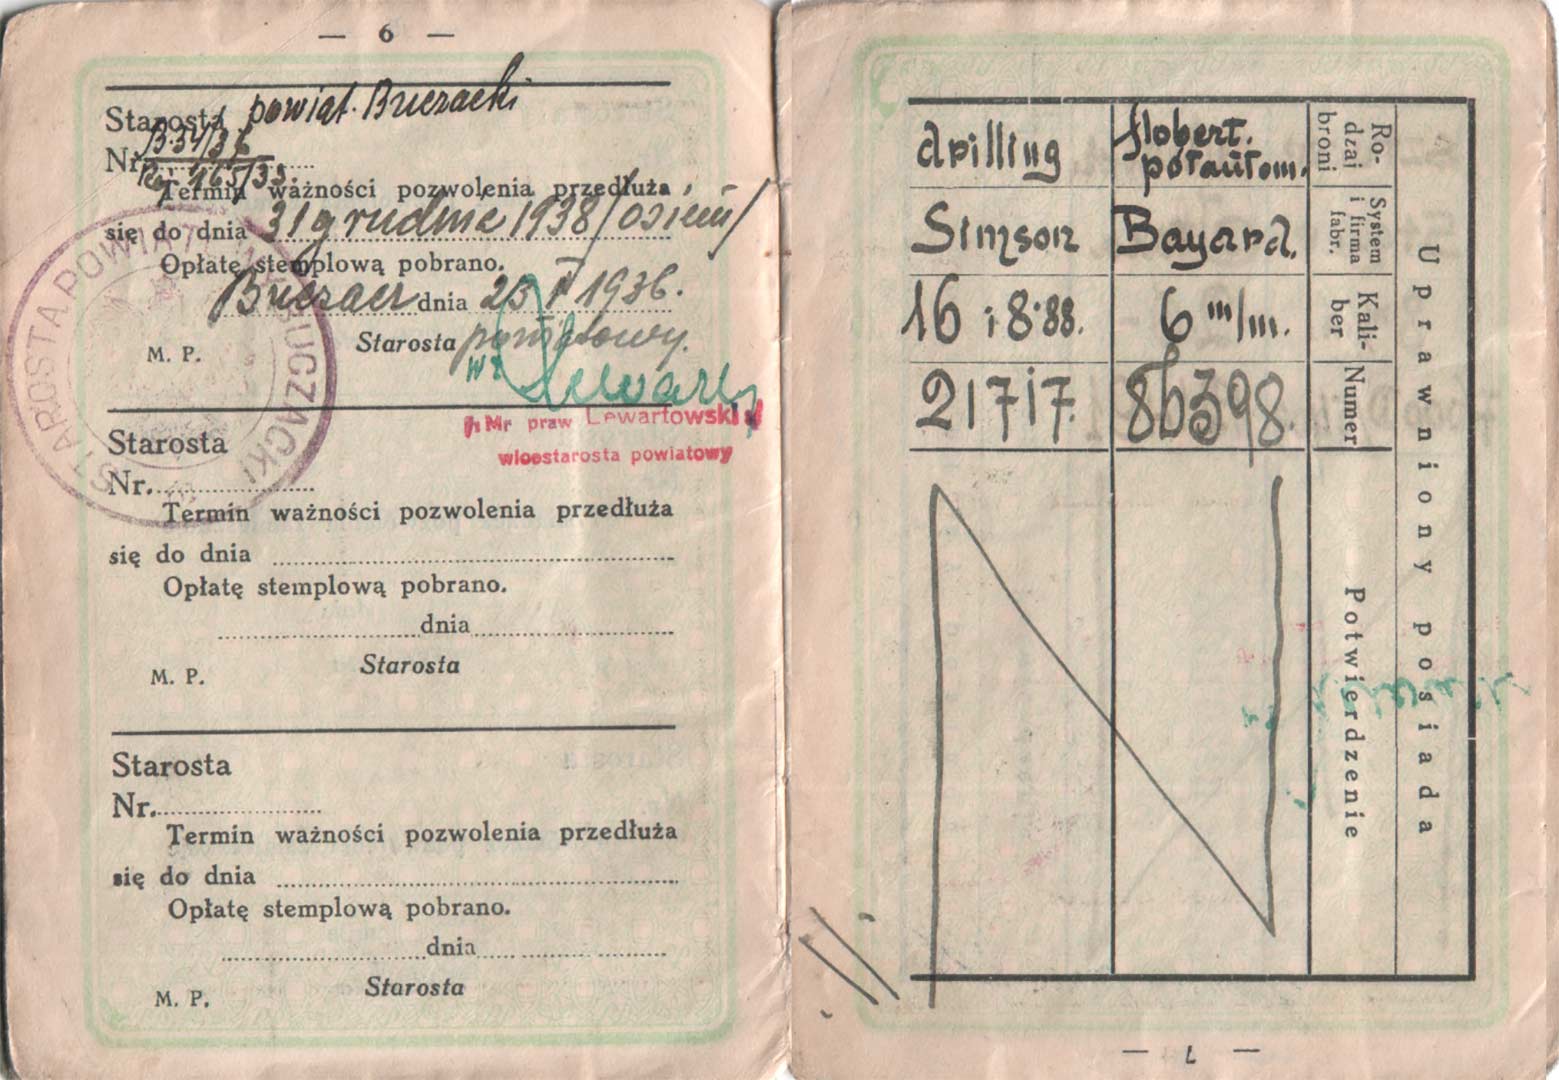 — 6 —
Starosta powiat. Buczacki
Nr. B.34/36
165/33.
Termin ważności pozwolenia przedłuża
się do dnia 31 grudnia 1938/osiem/
Opłatę stemplową pobrano.
Buczacz dnia 25 V 1936.
Starosta powiatowy.
M. P.
wz
Mr praw Lewartowski
wicestarosta powiatowy
STAROSTA POWIATOWY BUCZACKI
Starosta
Nr.
Termin ważności pozwolenia przedłuża
się do dnia
Opłatę stemplową pobrano.
dnia
M. P.
Starosta
Starosta
Nr.
Termin ważności pozwolenia przedłuża
się do dnia
Opłatę stemplową pobrano.
dnia
M. P.
Starosta
Uprawniony posiada
Ro-
dzaj
broni
System
i firma
fabr.
Kali-
ber
Numer
Potwierdzenie
flobert.
półautom.
Bayard.
6 m/m.
86398.
drilling
Simson
16 i 8·88.
21717.
— 7 —